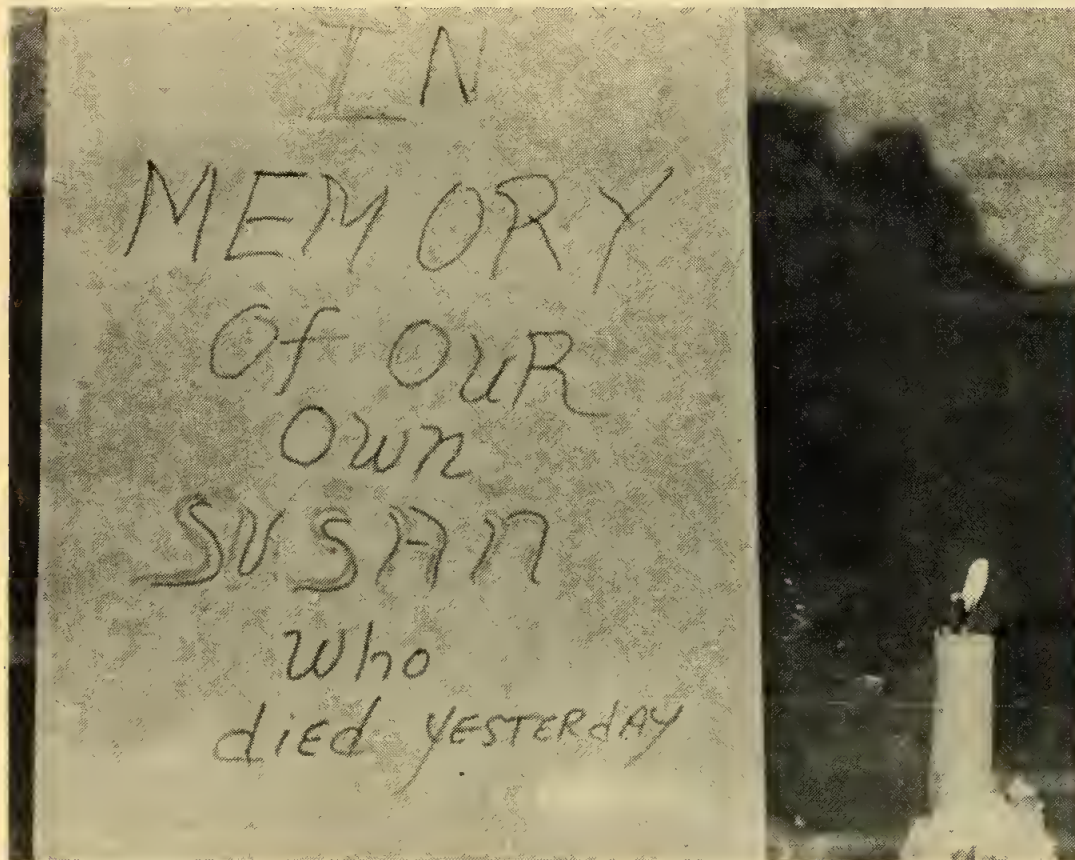 IN
MEMORY
Of OuR
Own
SUSAn
Who
diEd YESTERdAY